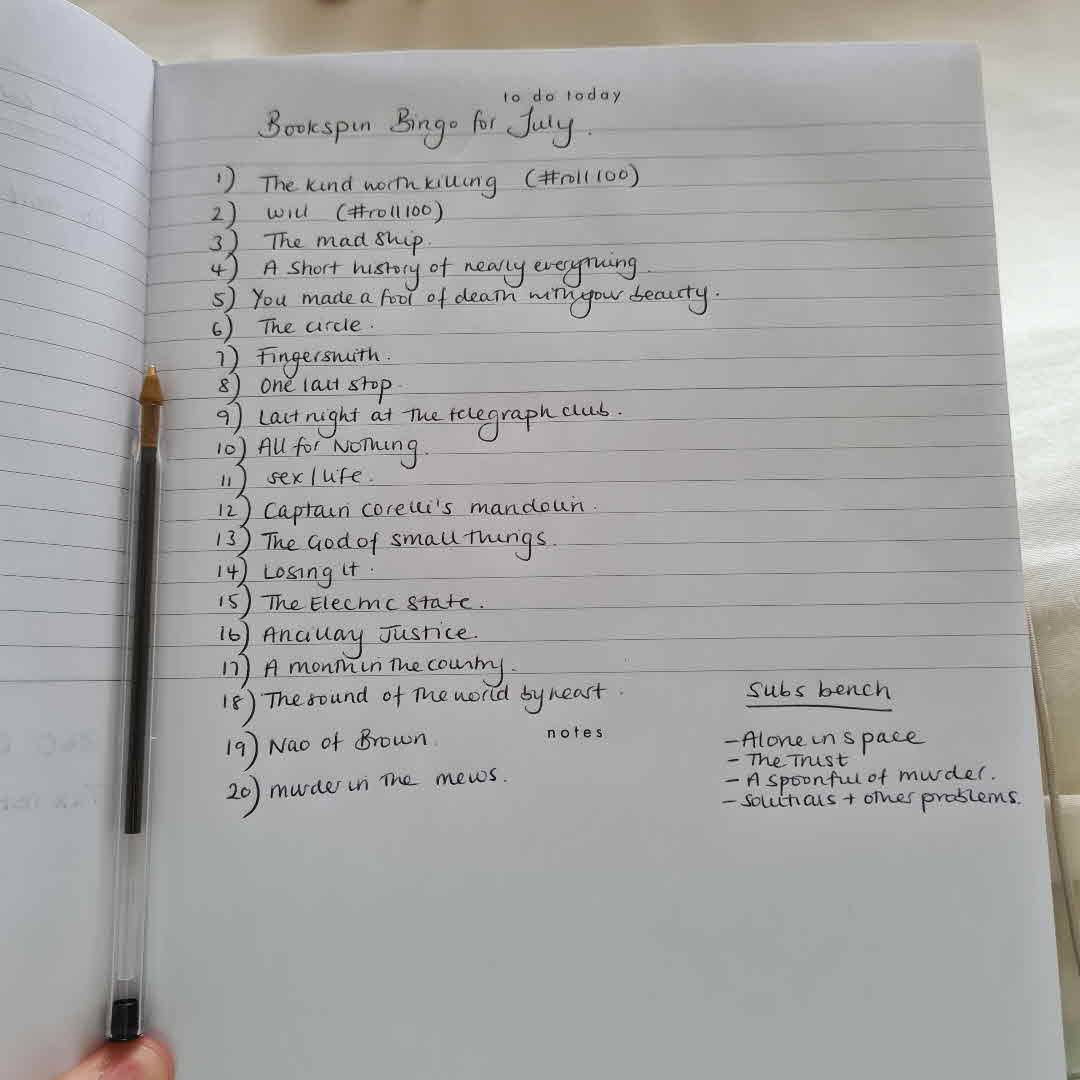 to do today
Bookspin Bingo for July.
1) The kind worth killing (#roll100)
2) will (#roll100)
3) The mad ship.
4) A short history of nearly everything.
5) You made a fool of death with your beauty.
6) The circle.
7) Fingersmith.
8) One last stop.
9) Last night at the telegraph club.
10) All for Nothing.
11) sex/life.
12) Captain Corelli's mandolin.
13) The God of small things.
14) Losing it.
15) The Electric state.
16) Ancillay Justice.
17) A month in the country.
18) The sound of the world by heart.
19) Nao of Brown.
20) murder in the mews.
notes
Subs bench
- Alone in space
- The Trust
- A spoonful of murder.
- Solutions + other problems.